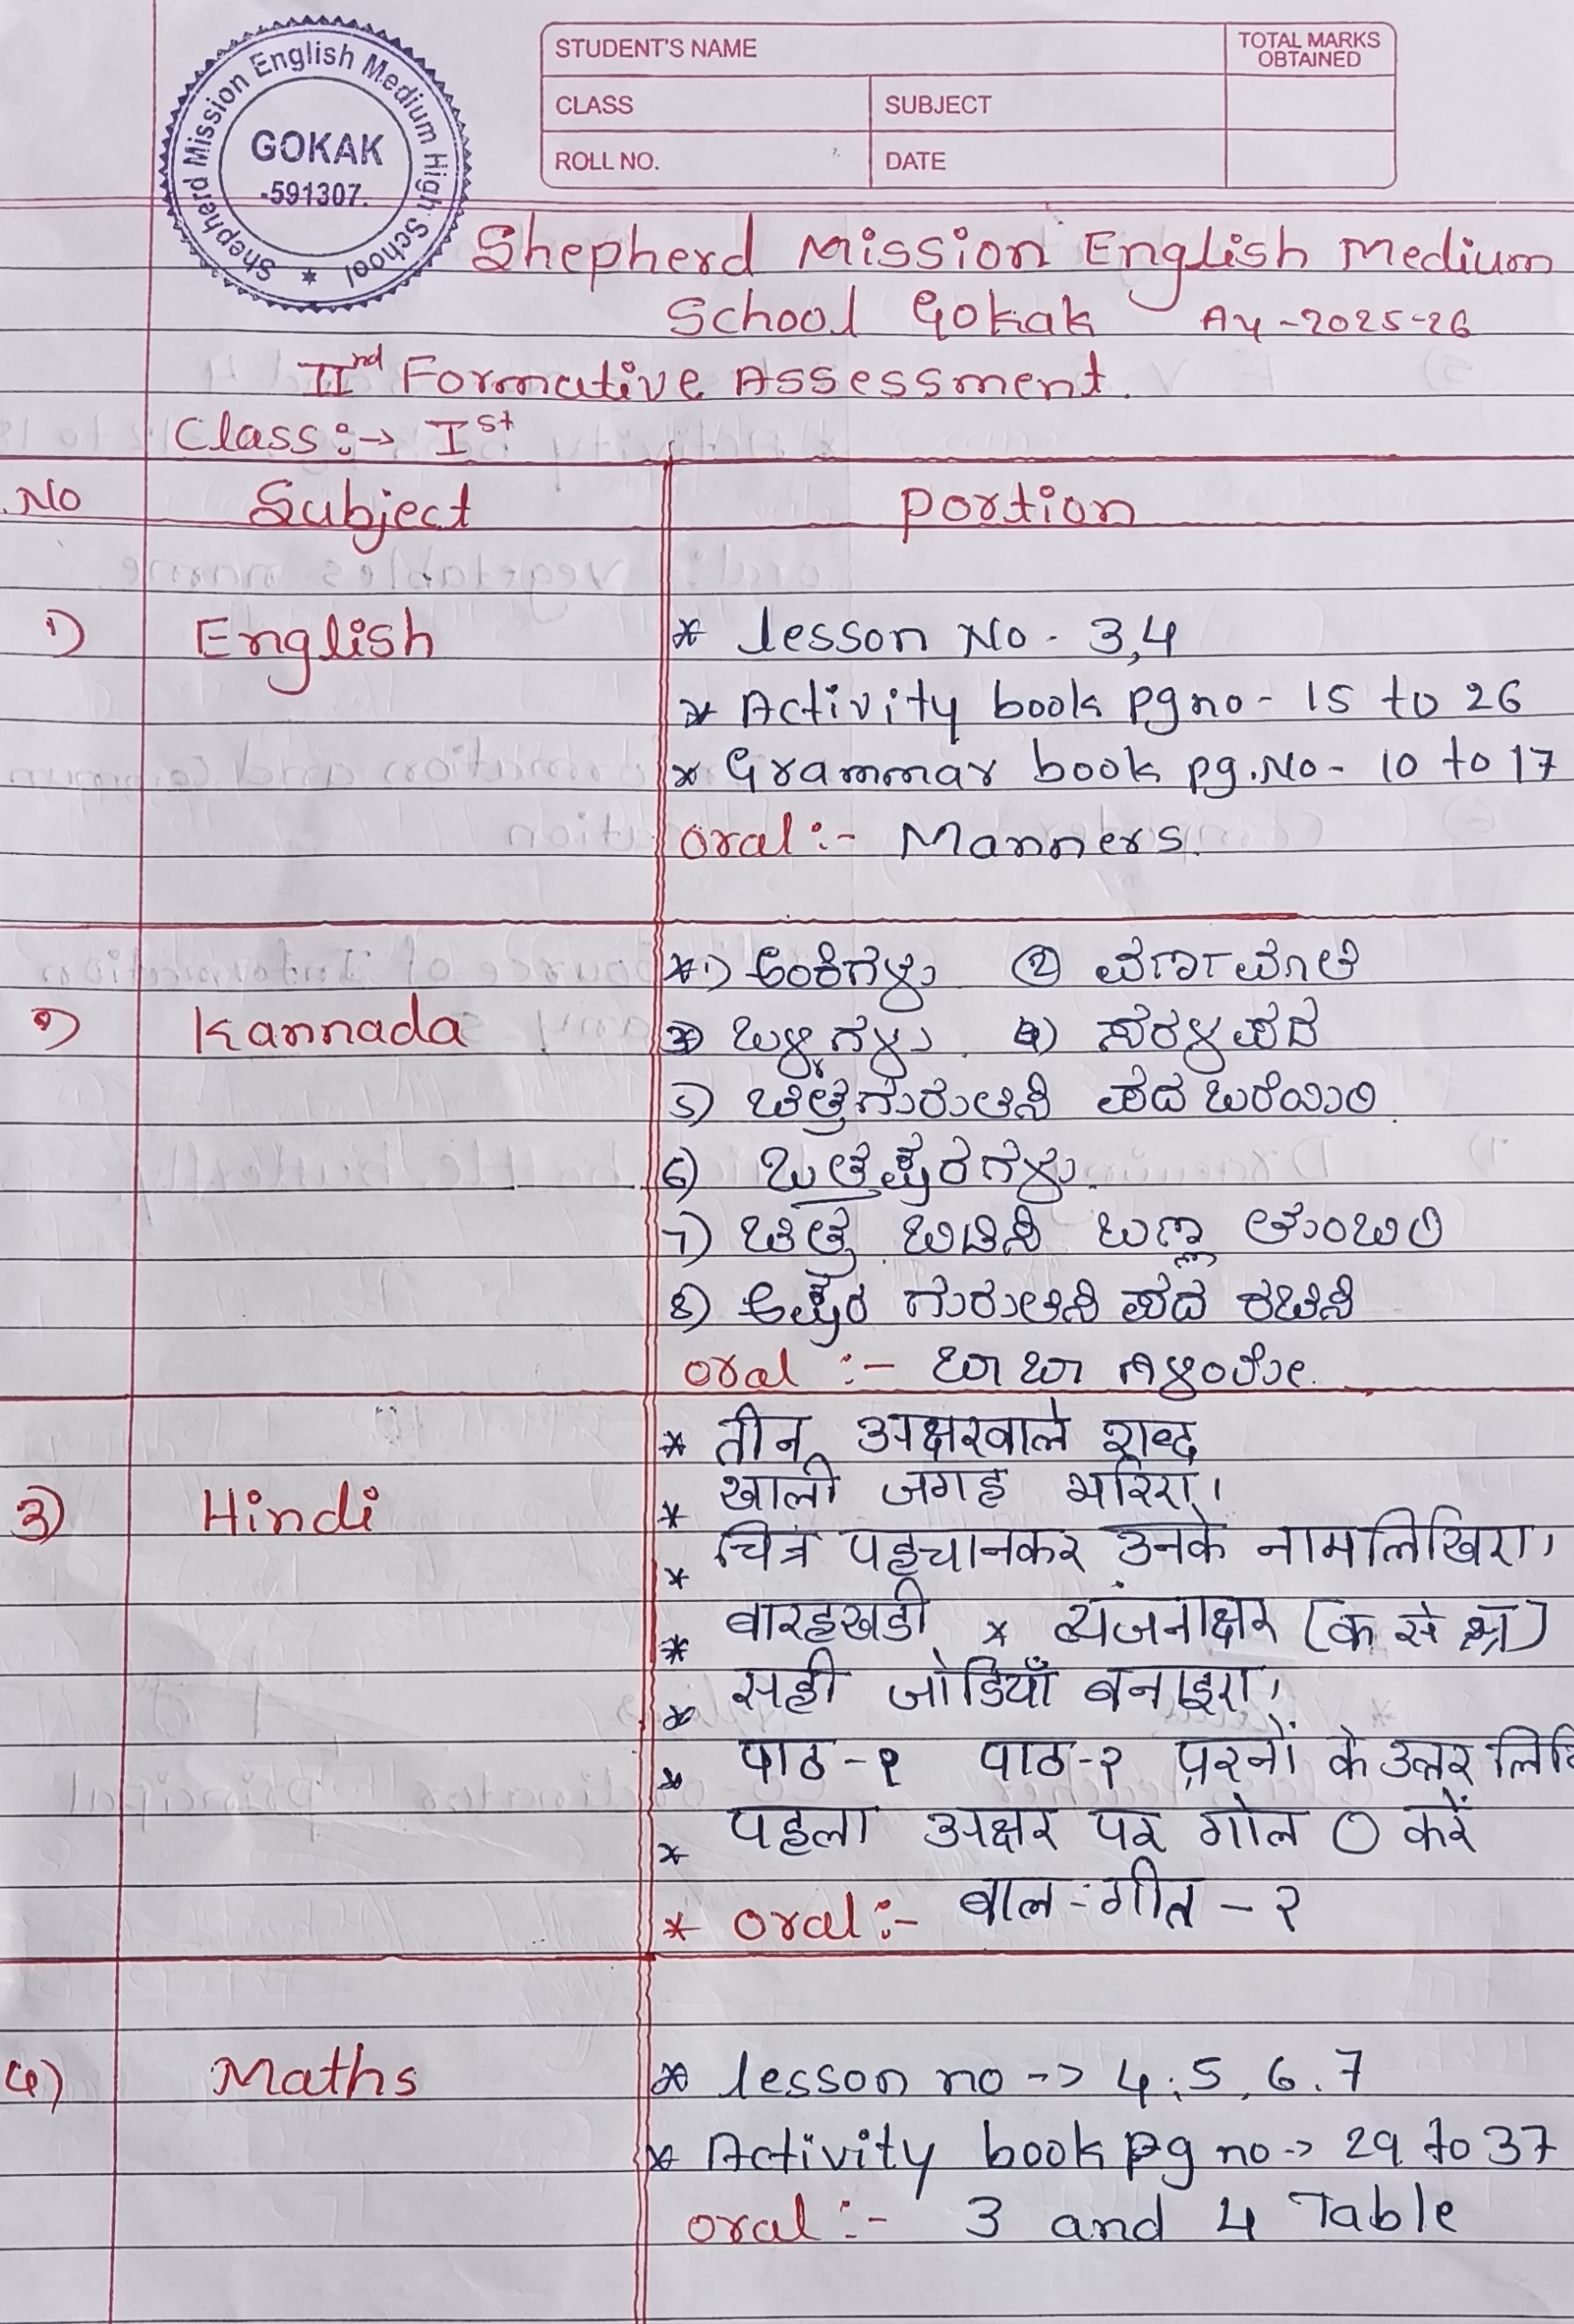 Shepherd Mission English Medium High School
GOKAK
-591307.
STUDENT'S NAME
TOTAL MARKS OBTAINED
CLASS
SUBJECT
ROLL NO.
DATE
Shepherd Mission English Medium
School Gokak AY-2025-26
IInd Formative Assessment.
Class:→ Ist
.No Subject Portion
1) English * lesson No - 3,4
* Activity book pg no - 15 to 26
* Grammar book pg.No - 10 to 17
oral :- Manners.
*1) ಅಂಕಿಗಳು ② ವರ್ಣಮಾಲೆ
2) Kannada 3) ಬಳ್ಳಿಗಳು. 4) ಸರಳ ಪದ
5) ಚಿತ್ರ ಗುರುತಿಸಿ ಪದ ಬರೆಯಿರಿ.
6) ಒತ್ತಕ್ಷರಗಳು.
7) ಚಿತ್ರ ಬಿಡಿಸಿ ಬಣ್ಣ ತುಂಬಿರಿ
8) ಅಕ್ಷರ ಗುರುತಿಸಿ ಪದ ರಚಿಸಿ
oral :- ಬಾ ಬಾ ಗಿಳಿಯೇ.
* तीन अक्षरवाले शब्द
3) Hindi * खाली जगह भरिए।
* चित्र पहचानकर उनके नाम लिखिए।
* बारहखडी * व्यंजनाक्षर (क से श्र)
* सही जोडियाँ बनाइए।
* पाठ-१ पाठ-२ प्रश्नों के उत्तर लि
* पहला अक्षर पर गोल O करें
* oral :- बाल-गीत - २
4) Maths * lesson no -> 4,5,6,7
* Activity book pg no -> 29 to 37
oral :- 3 and 4 Table